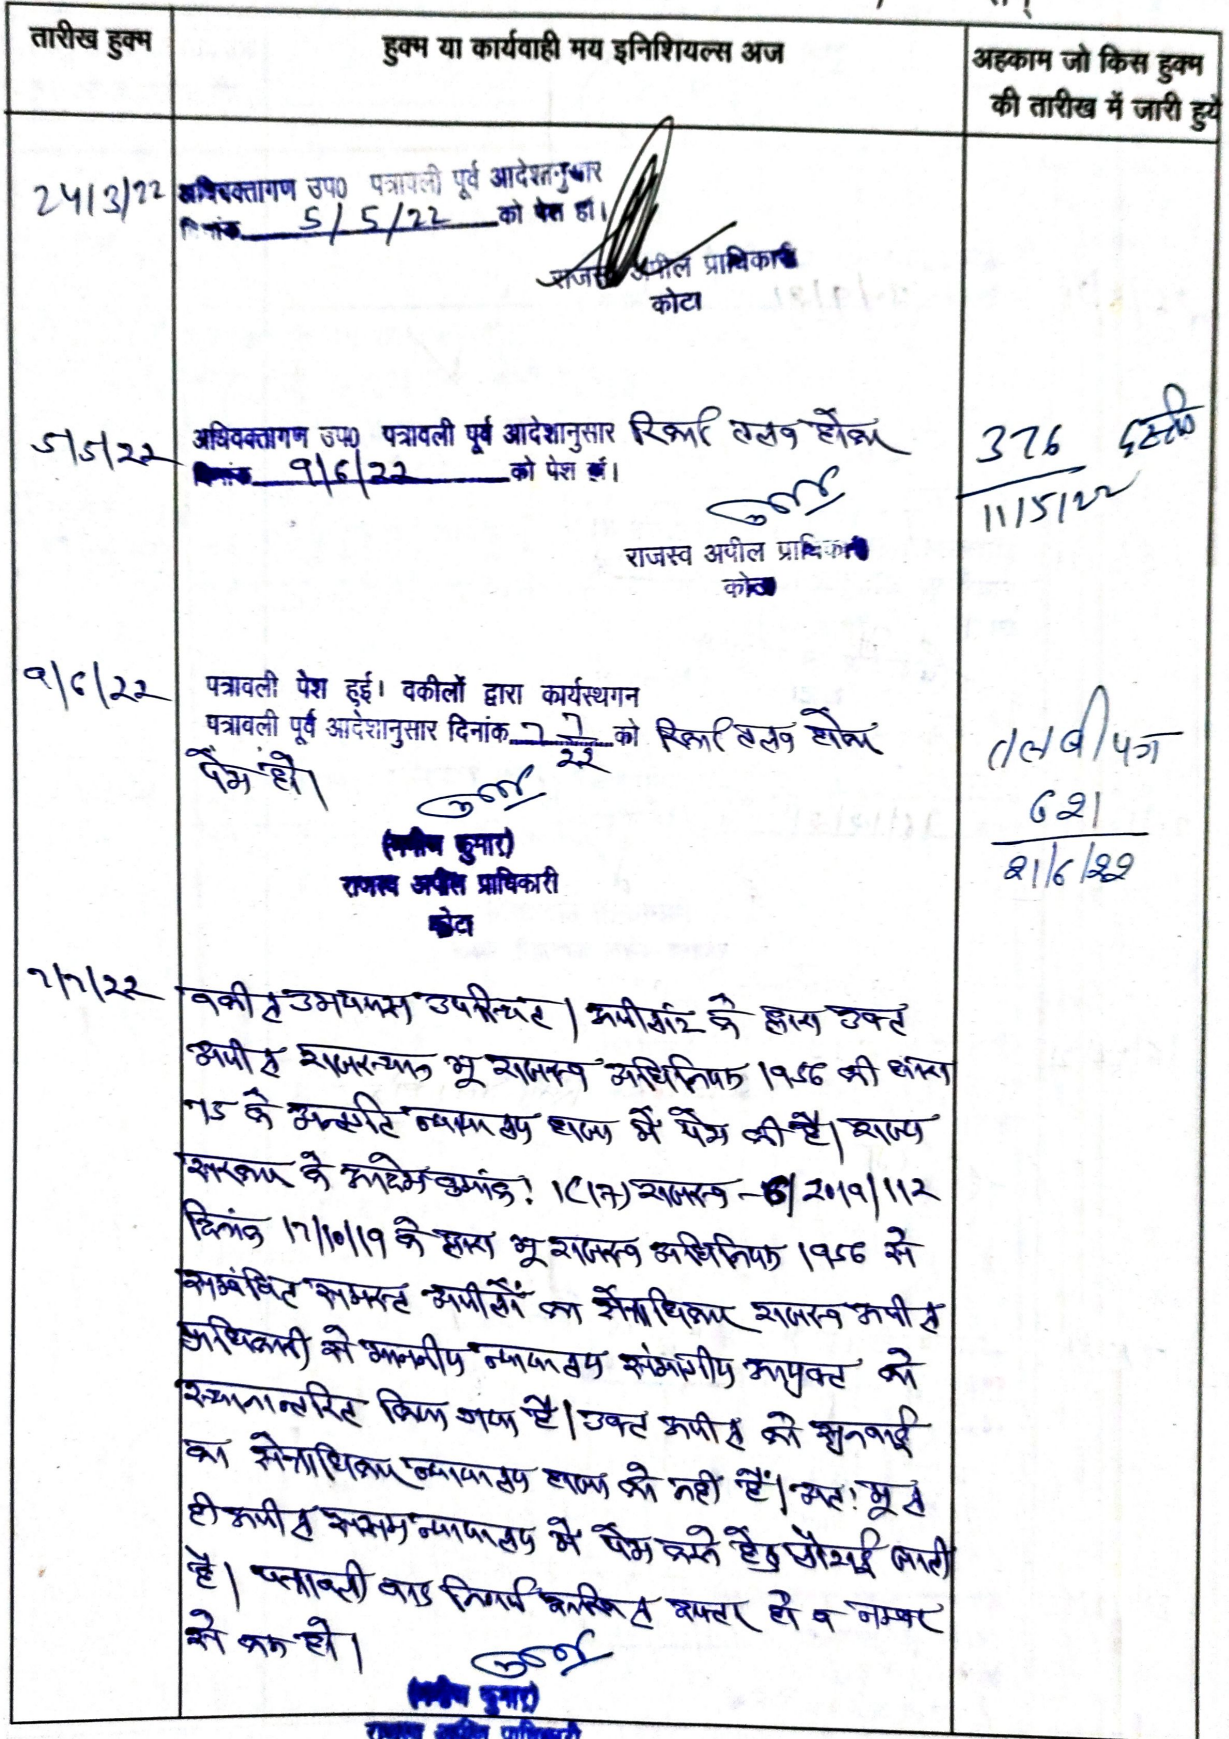 तारीख हुक्म
हुक्म या कार्यवाही मय इनिशियल्स अज
अहकाम जो किस हुक्म
की तारीख में जारी हुये
24/3/22
अधिवक्तागण उप0 पत्रावली पूर्व आदेशानुसार
दिनांक 5/5/22 को पेश हो।
राजस्व अपील प्राधिकारी
कोटा
5/5/22
अधिवक्तागण उप0 पत्रावली पूर्व आदेशानुसार रिकार्ड तलब होकर
दिनांक 9/6/22 को पेश हो।
राजस्व अपील प्राधिकारी
कोटा
376
11/5/22
9/6/22
पत्रावली पेश हुई। वकीलों द्वारा कार्यस्थगन
पत्रावली पूर्व आदेशानुसार दिनांक 7/7/22 को रिकार्ड तलब होकर
पेश हो।
(मनीष कुमार)
राजस्व अपील प्राधिकारी
कोटा
तलबी पत्र
621
21/6/22
7/7/22
वकील उभयपक्ष उपस्थित। अपीलांट के द्वारा उक्त
अपील राजस्थान भू राजस्व अधिनियम 1956 की धारा
75 के अन्तर्गत न्यायालय हाजा में पेश की है। राज्य
सरकार के आदेश क्रमांक: 1(17) राजस्व-6/2019/112
दिनांक 17/10/19 के द्वारा भू राजस्व अधिनियम 1956 से
सम्बंधित समस्त अपीलों का क्षेत्राधिकार राजस्व अपील
प्राधिकारी से माननीय न्यायालय संभागीय आयुक्त को
स्थानान्तरित किया गया है। उक्त अपील को सुनवाई
का क्षेत्राधिकार न्यायालय हाजा को नही हैं। अत: मूल
ही अपील सक्षम न्यायालय में पेश करने हेतु लौटाई जाती
है। पत्रावली बाद निर्णय दाखिल दफ्तर हो व नम्बर
से कम हो।
(मनीष कुमार)
राजस्व अपील प्राधिकारी